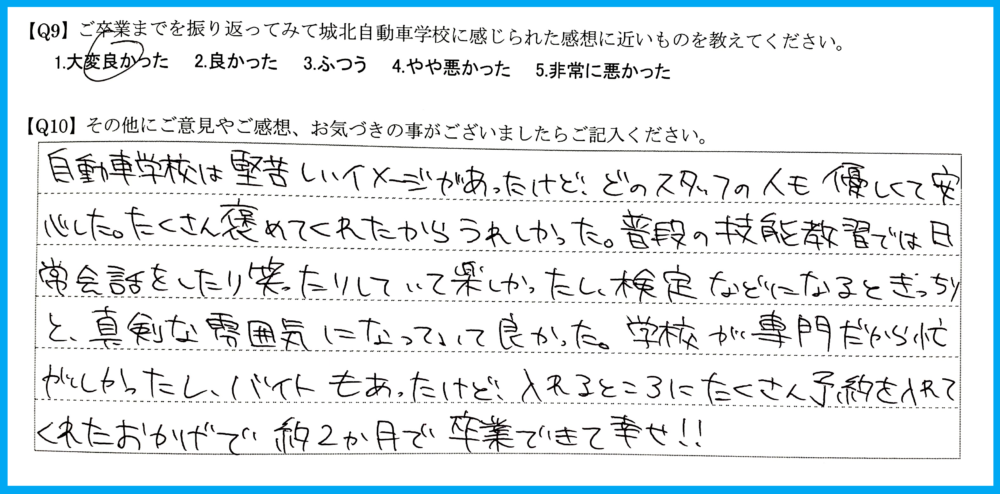 【Q9】ご卒業までを振り返ってみて城北自動車学校に感じられた感想に近いものを教えてください。
1.大変良かった 2.良かった 3.ふつう 4.やや悪かった 5.非常に悪かった
【Q10】その他にご意見やご感想、お気づきの事がございましたらご記入ください。
自動車学校は堅苦しいイメージがあったけど、どのスタッフの人も優しくて安
心した。たくさん褒めてくれたからうれしかった。普段の技能教習では日
常会話をしたり笑ったりしていて楽しかったし、検定などになるときっちり
と、真剣な雰囲気になっていて良かった。学校が専門だから忙
がしかったし、バイトもあったけど、入れるところにたくさん予約を入れて
くれたおかげで約2か月で卒業できて幸せ!!